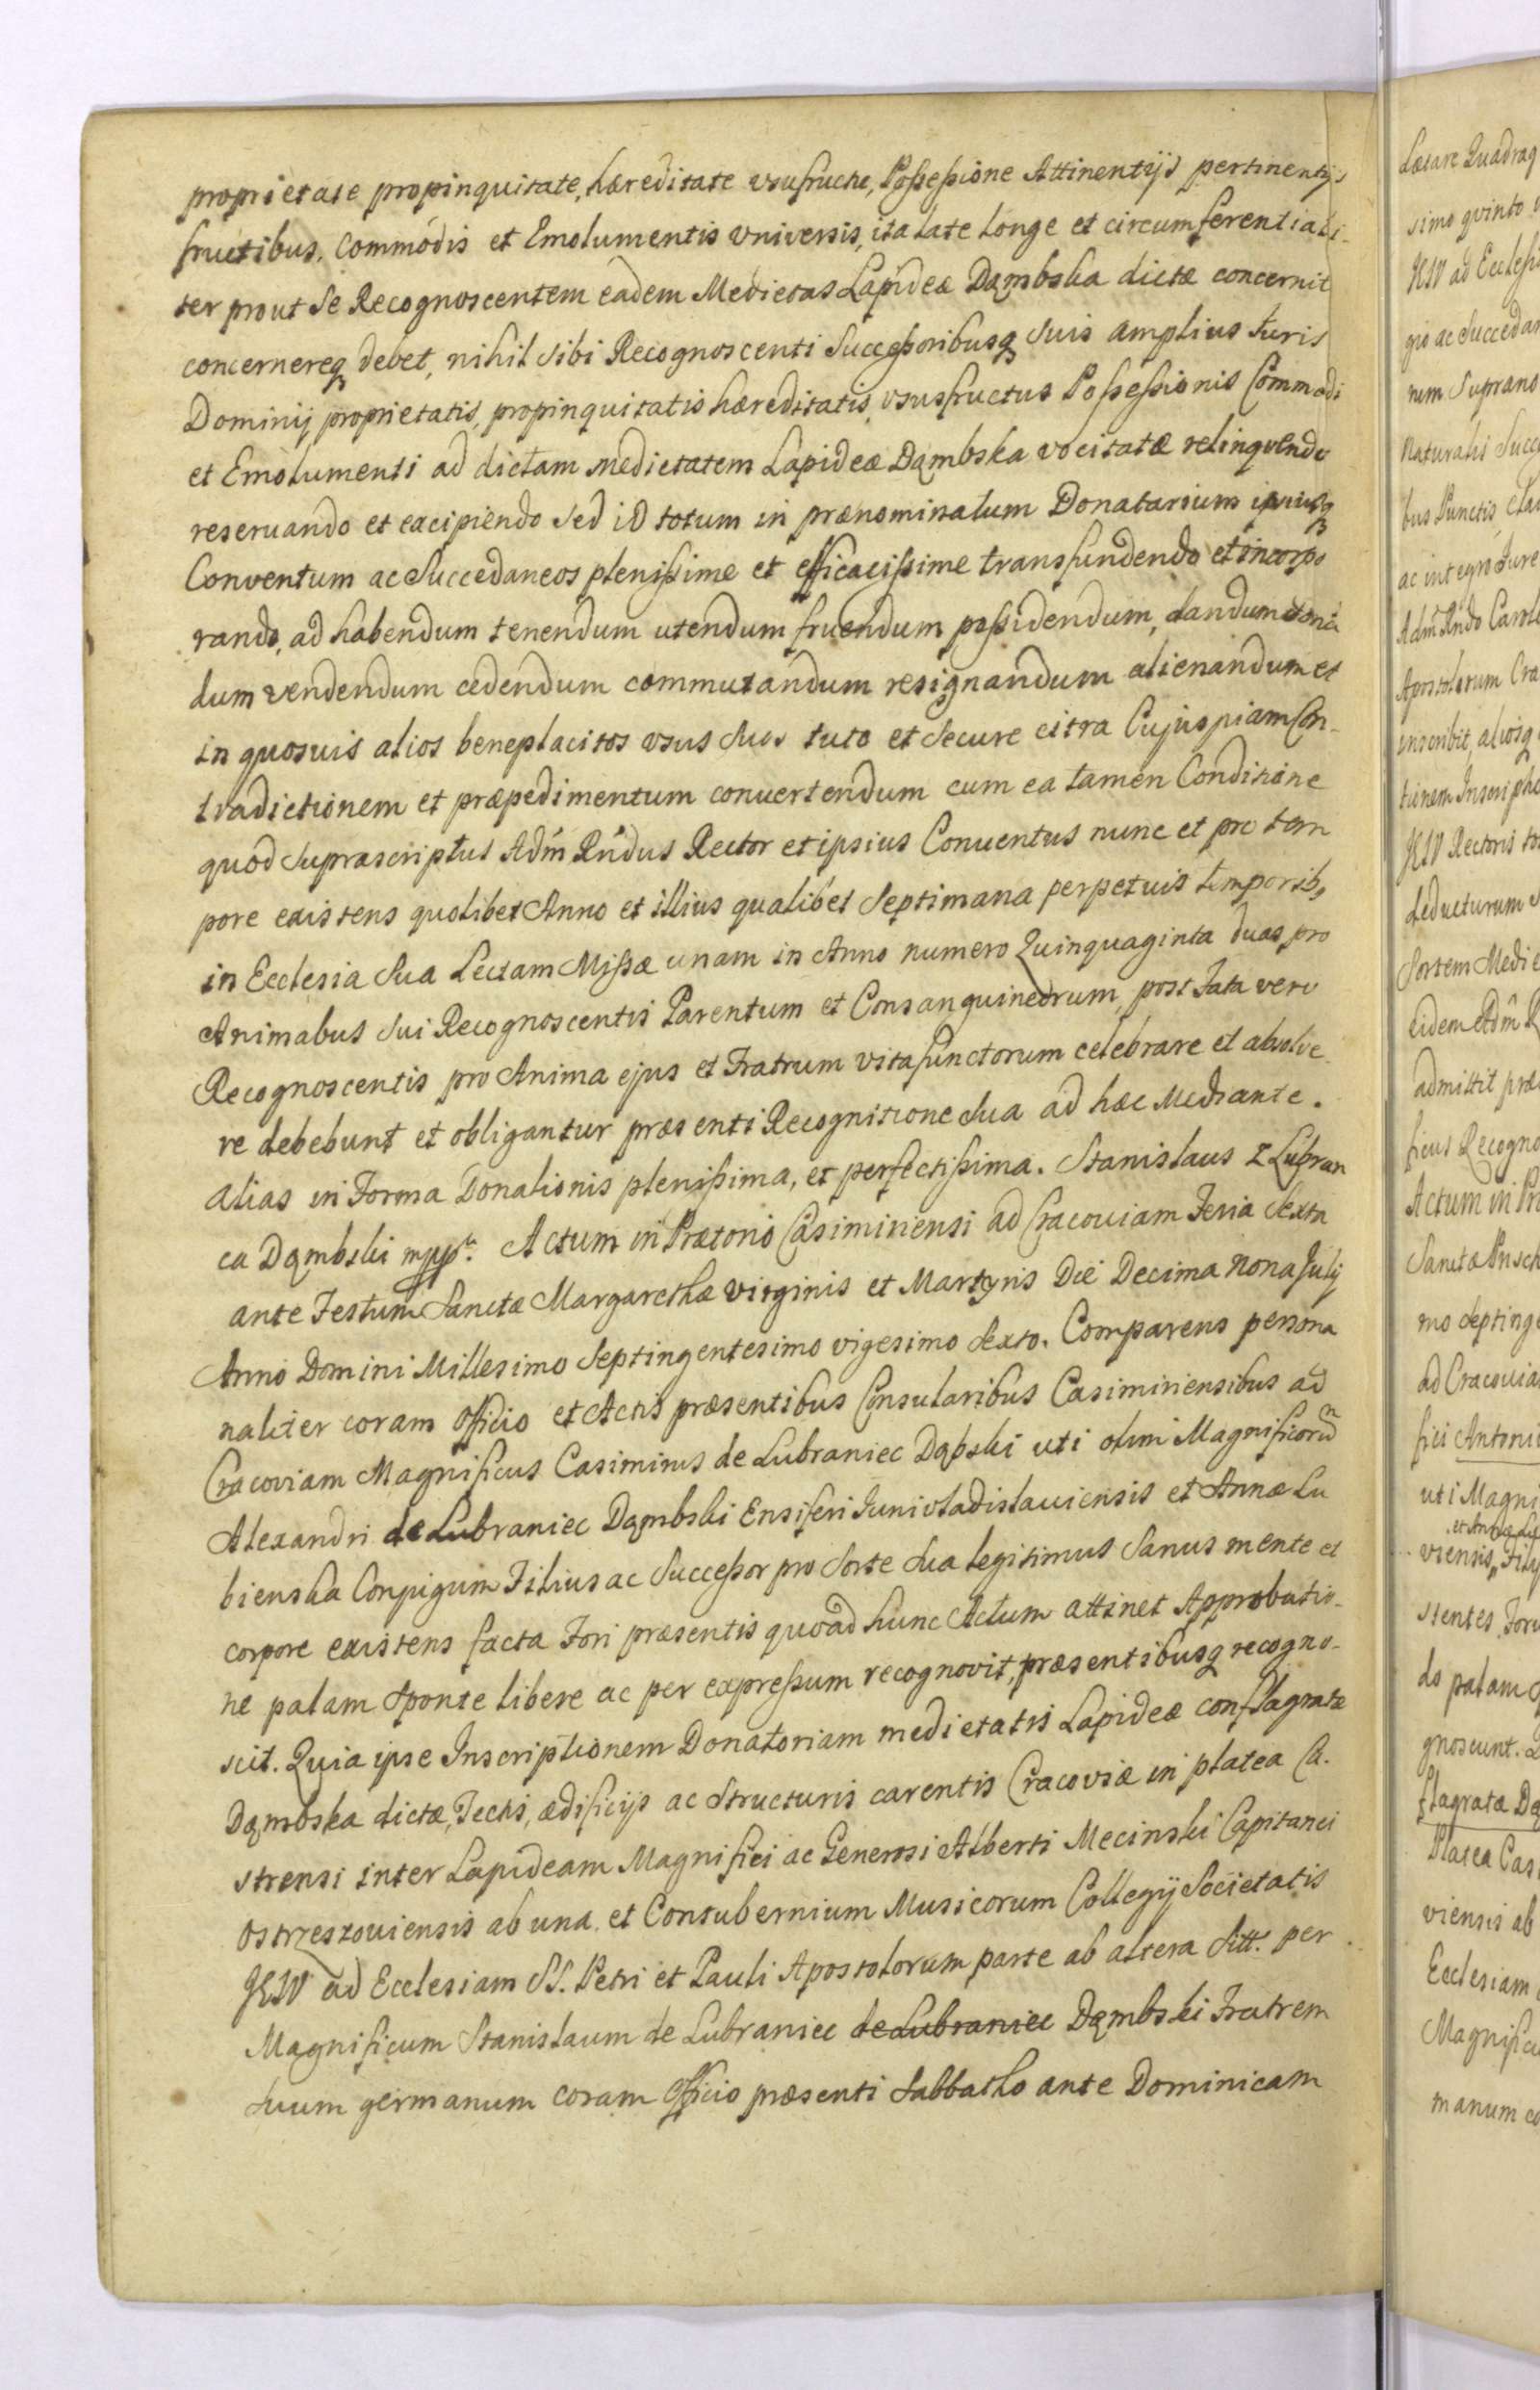 proprietate propinquitate, hæreditate vsufructu, Poßeßione Attinentijs pertinentijs
fructibus, Commodis et Emolumentis vniversis, ita late longe et circumferentiali-
ter prout se Recognoscentem eadem Medietas Lapideæ Dąmbska dictæ concernit
concernereq debet, nihil sibi Recognoscenti Succeßoribusq suis amplius Iuris
Dominij proprietatis, propinquitatis hæreditatis, vsusfructus Poßeßionis Commodi
et Emolumenti ad dictam medietatem Lapideæ Dąmbska vocitatæ relinquendo
reseruando et excipiendo sed id totum in prænominatum Donatarium ipsiusq
Conventum ac Succedaneos plenißime et efficacißime transfundendo et incorpo
rando, ad habendum tenendum utendum fruendum poßidendum, dandum donã
dum vendendum cedendum commutandum resignandum alienandum et
in quosuis alios beneplacitos vsus suos tuto et secure citra Cujuspiam Con-
tradictionem et præpedimentum conuertendum cum ea tamen Conditione
quod suprascriptus Adm̃ Rñdus Rector et ipsius Conuentus nunc et pro tem
pore existens quolibet Anno et illius qualibet Septimana perpetuis temporib9
in Ecclesia sua Lectam Mißæ unam in Anno numero Quinquaginta duas, pro
Animabus sui Recognoscentis Parentum et Consanguineorum, post Fata vero
Recognoscentis pro Anima ejus et Fratrum vitafunctorum celebrare et absolve
re debebunt et obligantur præsenti Recognitione sua ad hæc Mediante.
alias in Forma Donationis plenißima, et perfectißima. Stanislaus z Lubran
ca Dąmbski mpp. Actum in Prætorio Casimiriensi ad Cracouiam Feria sexta
ante Festum Sanctæ Margarethæ virginis et Martyris Die Decima nona Julij
Anno Domini Millesimo Septingentesimo vigesimo sexto. Comparens persona
naliter coram Officio et Actis præsentibus Consularibus Casimiriensibus ad
Cracoviam Magnificus Casimirus de Lubraniec Dąbski uti olim Magnificorũ
Alexandri de Lubraniec Dąmbski Ensiferi Junivladislauiensis et Annæ Lu
bienska Conjugum Filius ac Succeßor pro sorte sua legitimus Sanus mente et
corpore existens facta Fori præsentis quoad hunc Actum attinet Approbatio-
ne palam sponte libere ac per expreßum recognovit, præsentibusq recogno-
scit. Quia ipse Inscriptionem Donatoriam medietatis Lapideæ conflagratæ
Dąmbska dictæ, Tectis, ædificijs ac structuris carentis Cracoviæ in platea Ca-
strensi inter Lapideam Magnifici ac Generosi Alberti Mecinski Capitanei
Ostrzeszouiensis ab una, et Contubernium Musicorum Collegij Societatis
JESV ad Ecclesiam SS. Petri et Pauli Apostolorum parte ab altera sitt. per
Magnificum Stanislaum de Lubraniec de Lubraniec Dąmbski Fratrem
suum germanum coram Officio præsenti Sabbatho ante Dominicam
Lætare Quadrag
simo quinto
JESV ad Ecclesi
gio ac Succedan
nem Suprano
Naturalis Succ
ac integro Jure
Adm̃ Rndo Carol
Apostolorum Cra
inscribit, aliosq
tionem Inscriptio
JESV Rectoris
deducturum
Sortem Medie
eidem Adm̃ R
admittit præ
ficus Recogno
Actum in Præ
Sanctæ Prisc
mo septinge
ad Cracouia
fici Antoni
uti Magni
viensis, Filij
stentes, Fori
do palam
gnoscunt.
flagratæ Dą
Platea Cas
viensis ab
Ecclesiam
Magnificu
manum co